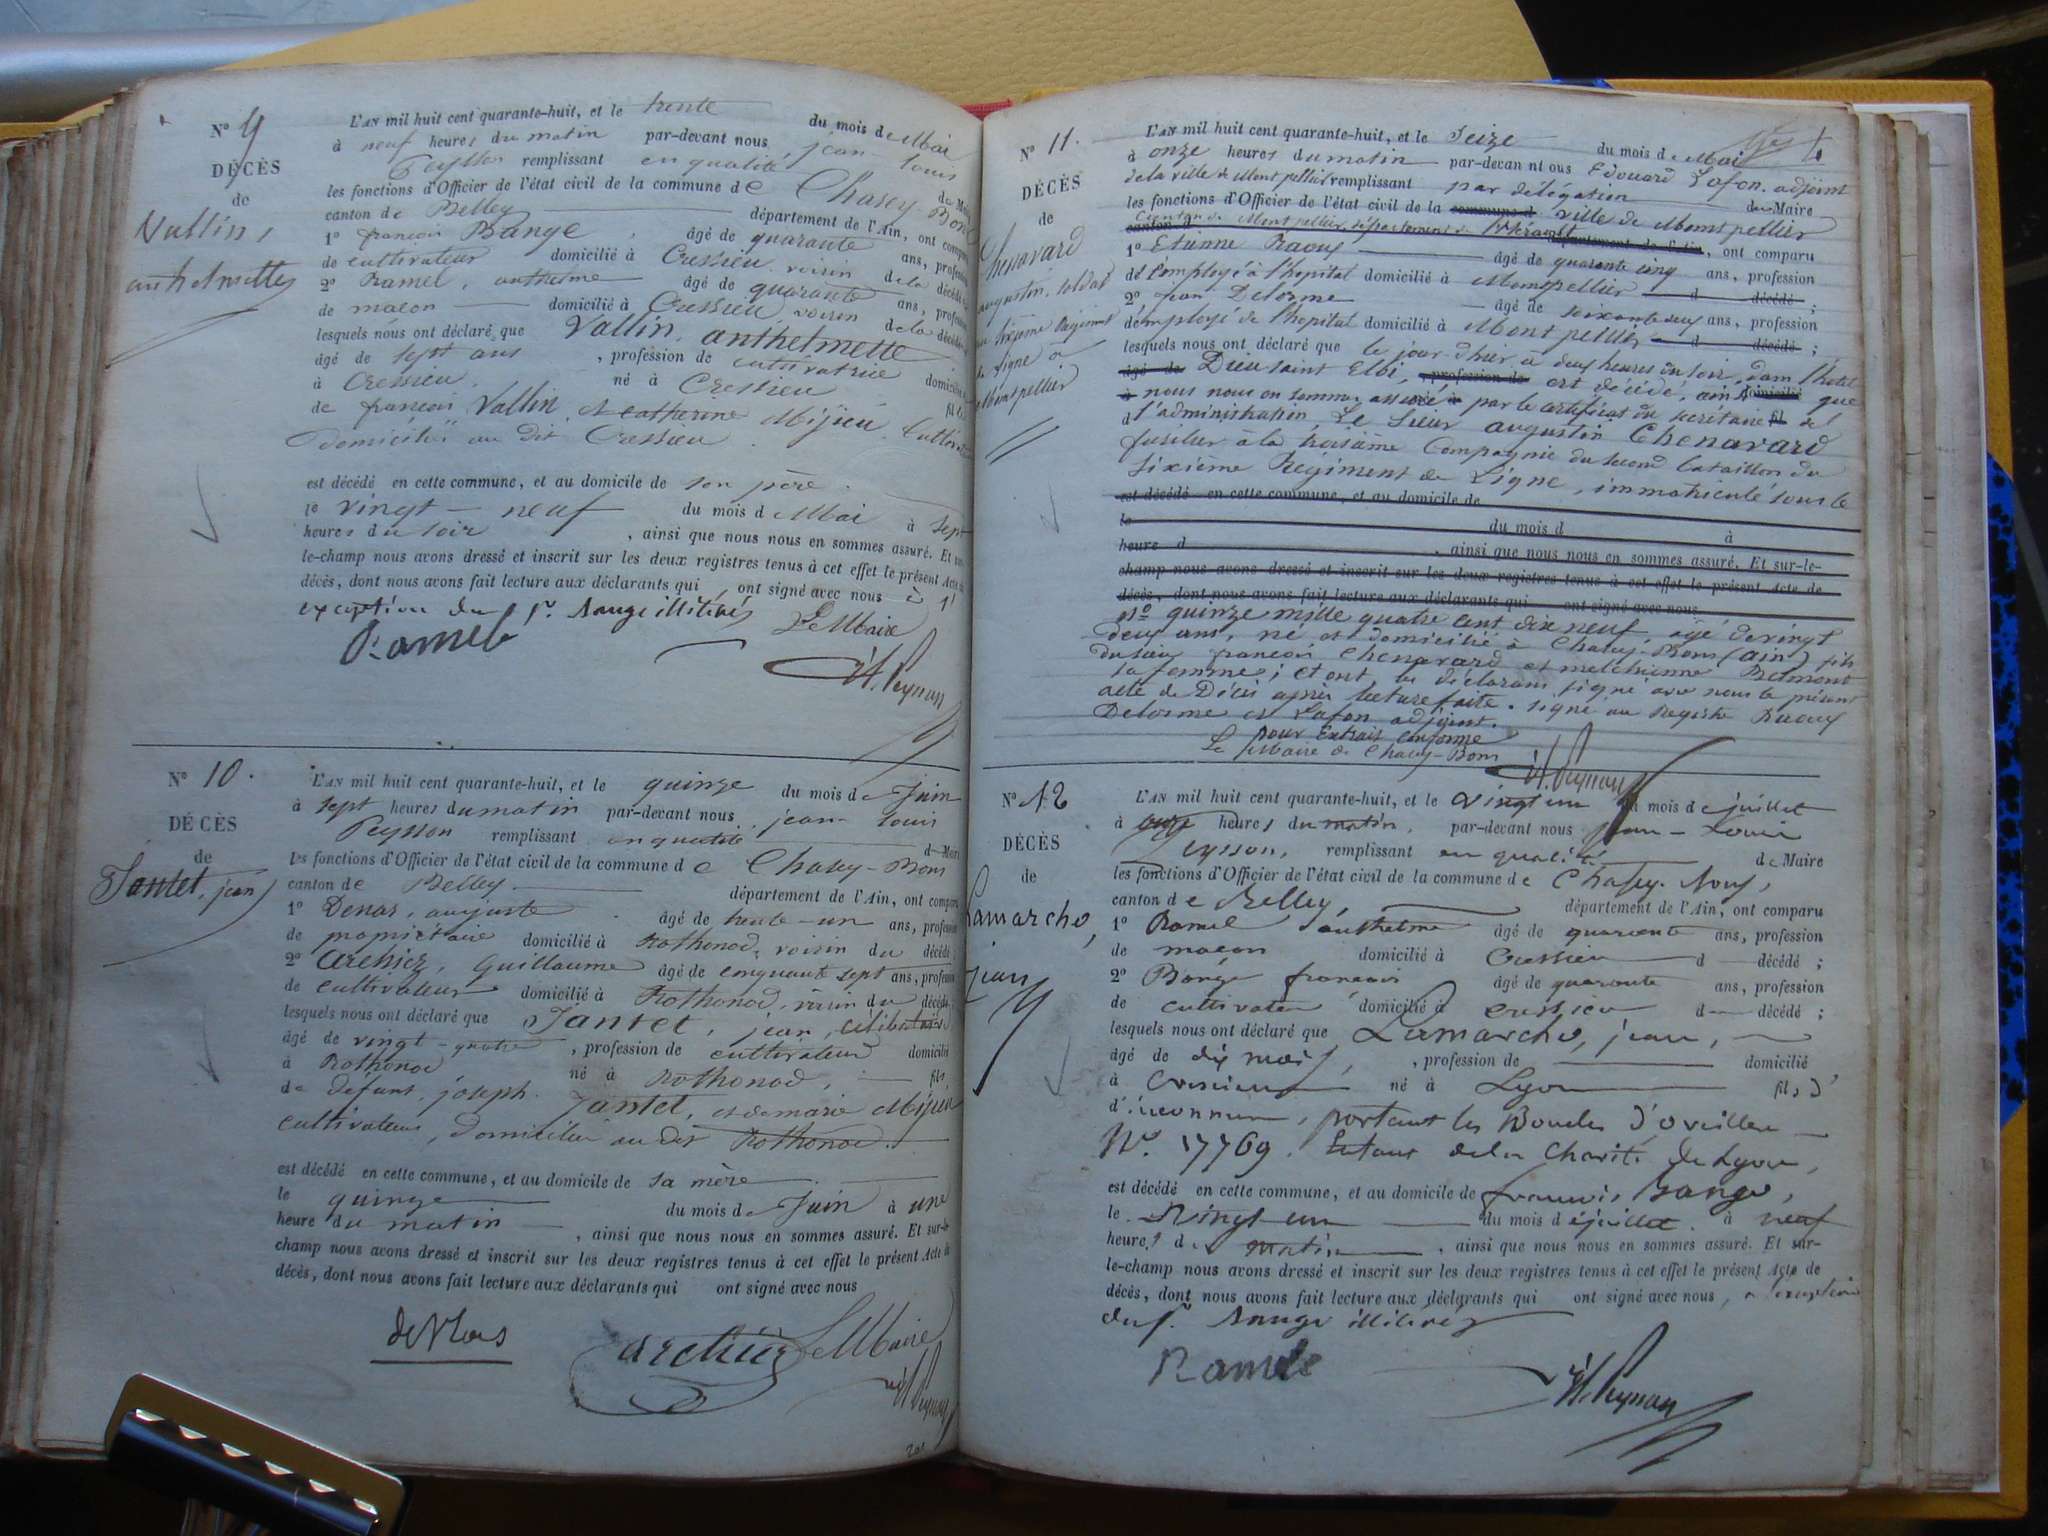 N° 9
DÉCÈS
de
Vallin,
anthelmette
L'AN mil huit cent quarante-huit, et le trente du mois de Mai
à neuf heures du matin par-devant nous jean louis
Peysson remplissant en qualité de Maire
les fonctions d'Officier de l'état civil de la commune de Chasey-Bons
canton de Belley département de l'Ain, ont comparu
1° françois Bange, âgé de quarante ans, profession
de cultivateur domicilié à Cressieu voisin de la décédée
2° Ramel, anthelme âgé de quarante ans, profession
de maçon domicilié à Cressieu voisin de la décédée
lesquels nous ont déclaré que Vallin, anthelmette
âgé de sept ans, profession de cultivatrice domicilié
à Cressieu, né à Cressieu fil
de françois Vallin et catherine Mijieu, Cultivateurs
domiciliés au dit Cressieu
est décédé en cette commune, et au domicile de son père
le vingt-neuf du mois de Mai à sept
heures du soir, ainsi que nous nous en sommes assuré. Et sur-
le-champ nous avons dressé et inscrit sur les deux registres tenus à cet effet le présent Acte de
décès, dont nous avons fait lecture aux déclarants qui ont signé avec nous à l'
exception du Sr. Bange illitéré
Ramel Le Maire
N° 10.
DÉCÈS
de
Jantet, jean
L'AN mil huit cent quarante-huit, et le quinze du mois de Juin
à sept heures du matin par-devant nous jean louis
Peysson remplissant en qualité de Maire
les fonctions d'Officier de l'état civil de la commune de Chasey-Bons
canton de Belley département de l'Ain, ont comparu
1° Denas, auguste âgé de trente-un ans, profession
de propriétaire domicilié à Rothonod, voisin du décédé;
2° Archiez, Guillaume âgé de cinquante sept ans, profession
de cultivateur domicilié à Rothonod, voisin du décédé;
lesquels nous ont déclaré que Jantet, jean, célibataire
âgé de vingt-quatre, profession de cultivateur domicilié
à Rothonod né à Rothonod, fils,
de défunt, joseph Jantet, et de marie Mijieu
cultivateurs, domiciliés au dit Rothonod.
est décédé en cette commune, et au domicile de sa mère
le quinze du mois de Juin à une
heure du matin, ainsi que nous nous en sommes assuré. Et sur-le-
champ nous avons dressé et inscrit sur les deux registres tenus à cet effet le présent Acte de
décès, dont nous avons fait lecture aux déclarants qui ont signé avec nous
archiez Le Maire
N° 11.
DÉCÈS
de
Chenavard
augustin, soldat
au sixième Régiment
de ligne à
Montpellier
L'AN mil huit cent quarante-huit, et le Seize du mois de Mai
à onze heures du matin par-devant nous Edouard Lafon, adjoint
de la ville de Montpellier remplissant par délégation du Maire
les fonctions d'Officier de l'état civil de la commune d ville de Montpellier
canton de Montpellier, département de l'Hérault département de l'Ain, ont comparu
1° Etienne Raouy âgé de quarante cinq ans, profession
d'Employé à l'hopital domicilié à Montpellier d décédé;
2° jean Delorme âgé de soixante deux ans, profession
d'employé de l'hopital domicilié à Montpellier d décédé;
lesquels nous ont déclaré que le jour d'hier à deux heures du soir, dans l'hotel
âgé de Dieu saint Eloi, profession de est décédé, ainsi domicilié que
à nous nous en sommes assuré né à par le certificat du secrétaire fil de
d l'administration, Le Sieur augustin Chenavard
fusilier à la troisième Compagnie du second bataillon du
sixième Régiment de Ligne, immatriculé sous le
est décédé en cette commune, et au domicile de
le du mois d à
heure d, ainsi que nous nous en sommes assuré. Et sur-le-
champ nous avons dressé et inscrit sur les deux registres tenus à cet effet le présent Acte de
décès, dont nous avons fait lecture aux déclarants qui ont signé avec nous
n° quinze mille quatre cent dix neuf, âgé de vingt
deux ans, né et domicilié à Chasey-Bons (ain) fils
du sieur françois Chenavard et melchionne Belmont
sa femme; et ont les déclarans signé avec nous le présent
acte de Décès après lecture faite. signé au Registre Raouy
Delorme et Lafon adjoint.
pour Extrait conforme
Le Maire de Chasey-Bons
N° 12
DÉCÈS
de
Lamarche,
jean
L'AN mil huit cent quarante-huit, et le vingt un du mois de juillet
à onze heures du matin, par-devant nous jean-Louis
Peysson, remplissant en qualité de Maire
les fonctions d'Officier de l'état civil de la commune de Chasey-Bons,
canton de Belley, département de l'Ain, ont comparu
1° Ramel anthelme âgé de quarante ans, profession
de maçon domicilié à Cressieu d décédé;
2° Bange françois âgé de quarante ans, profession
de cultivateur domicilié à cressieu d décédé;
lesquels nous ont déclaré que Lamarche, jean,
âgé de dix mois, profession de domicilié
à Cressieu né à Lyon fils d'
d'inconnus, portant les Boucles d'oreilles
N°. 17769, Enfant de la Charité de Lyon,
est décédé en cette commune, et au domicile de francois Bange,
le vingt-un du mois de juillet à neuf
heures du matin, ainsi que nous nous en sommes assuré. Et sur-
le-champ nous avons dressé et inscrit sur les deux registres tenus à cet effet le présent Acte de
décès, dont nous avons fait lecture aux déclarants qui ont signé avec nous, à l'exception
du sr. Bange illitéré
Ramel